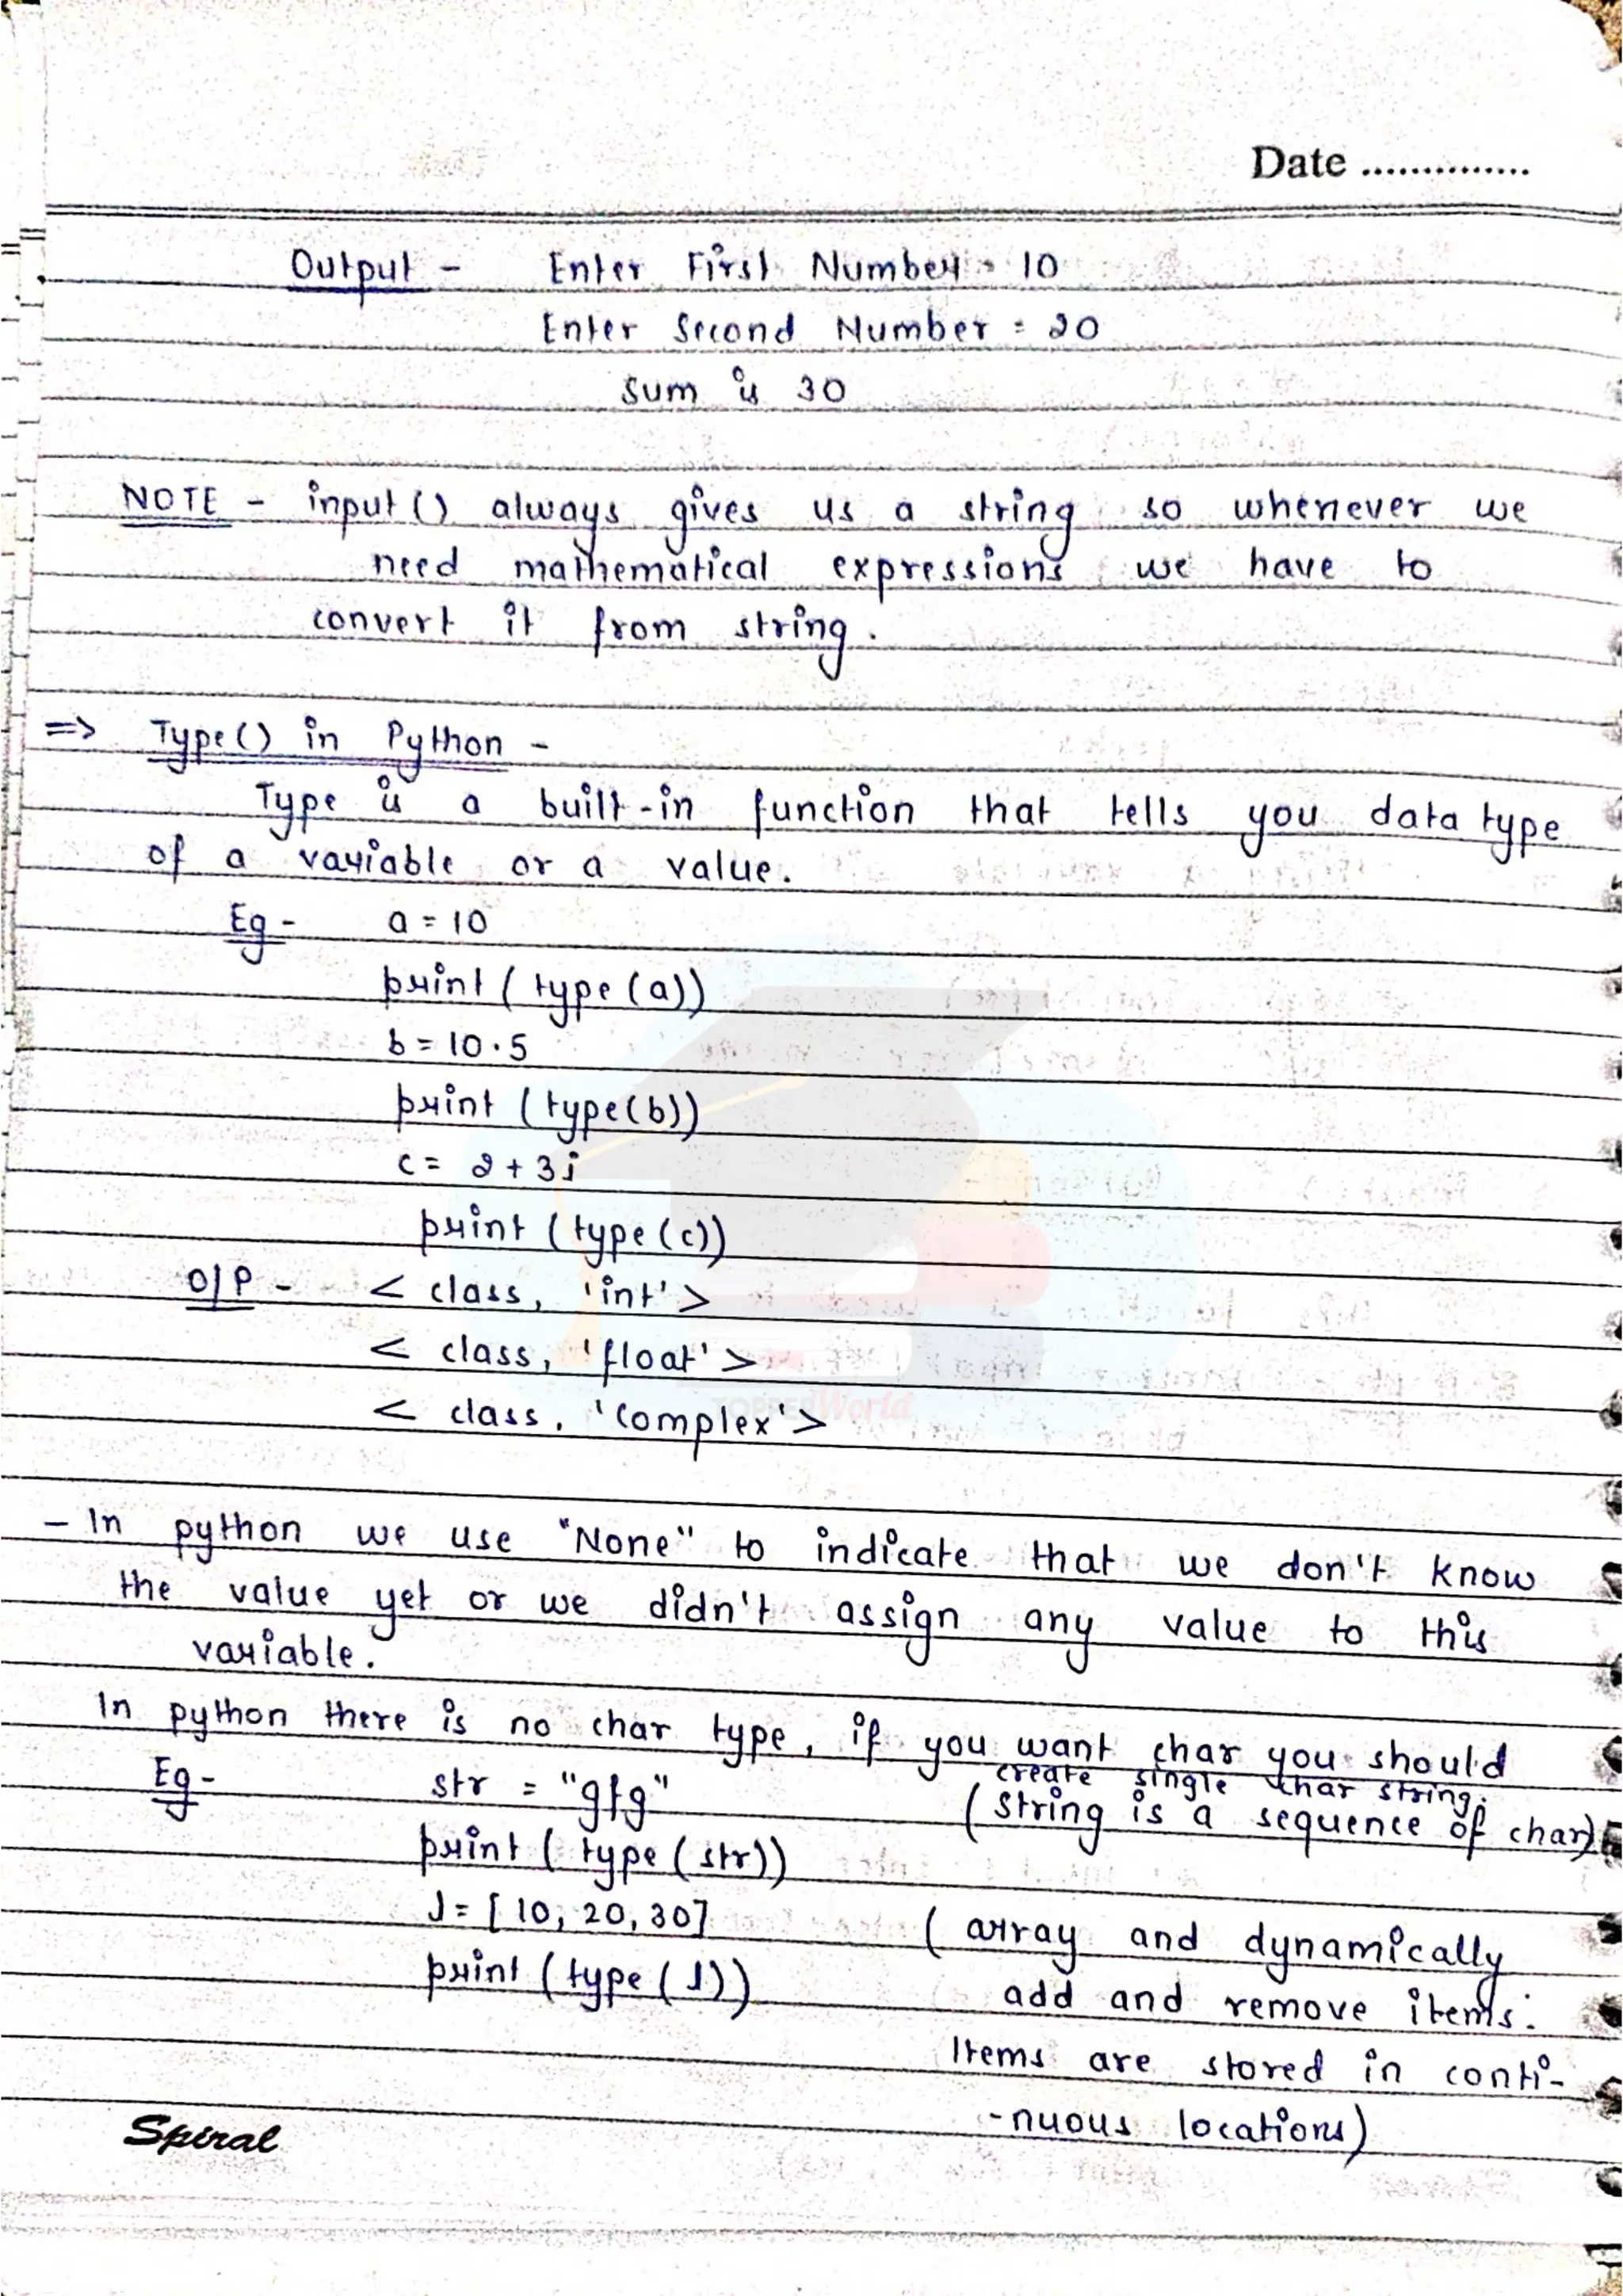 Date ...............
Output - Enter First Number = 10
Enter Second Number = 20
Sum is 30
NOTE - input () always gives us a string so whenever we
need mathematical expressions we have to
convert it from string.
=> Type() in Python -
Type is a built-in function that tells you data type
of a variable or a value.
Eg - a = 10
print ( type (a))
b = 10.5
print ( type(b))
c = 2 + 3j
print ( type (c))
O/P - < class, 'int' >
< class, 'float' >
TOPPERWorld
< class, 'complex' >
- In python we use "None" to indicate that we don't know
the value yet or we didn't assign any value to this
variable.
In python there is no char type, if you want char you should
create single char string.
Eg - str = "gfg" ( string is a sequence of char)
print ( type ( str))
l = [ 10, 20, 30] ( array and dynamically
print ( type ( l)) add and remove items.
Items are stored in conti-
-nuous locations)
Spiral